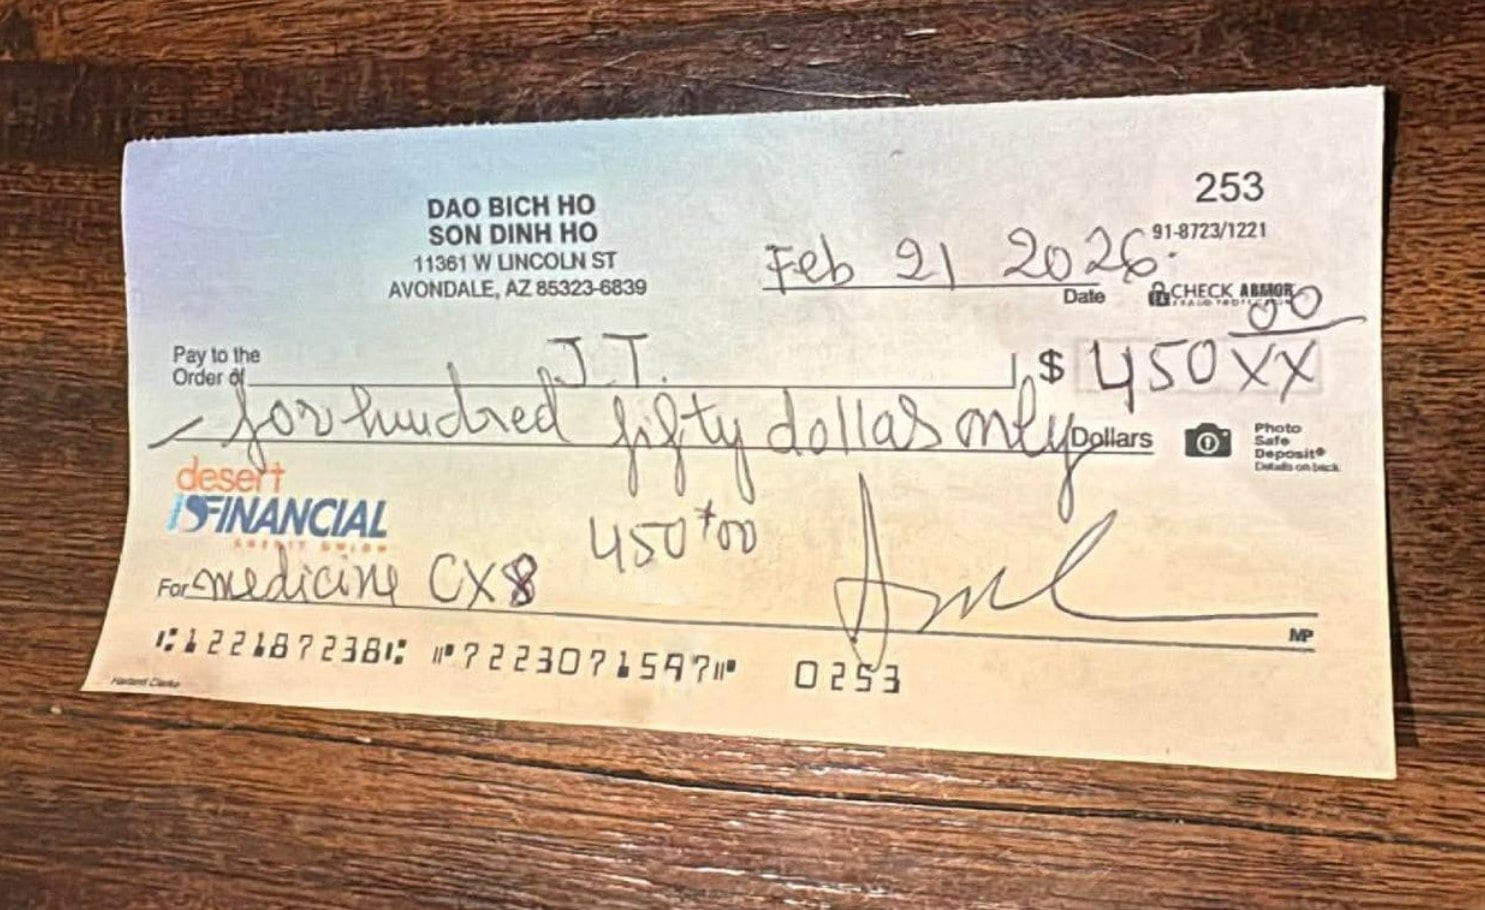 253
DAO BICH HO
SON DINH HO
11361 W LINCOLN ST
AVONDALE, AZ 85323-6839
91-8723/1221
Feb 21 2026
Date
CHECK ARMOR
Pay to the
Order of J.T. $ 450 00/XX
for hundred fifty dollars only Dollars
Photo
Safe
Deposit®
Details on back
desert
FINANCIAL
CREDIT UNION
450+00
For medicine CX8
MP
⑆122187238⑆ ⑈7223071597⑈ 0253
Harland Clarke